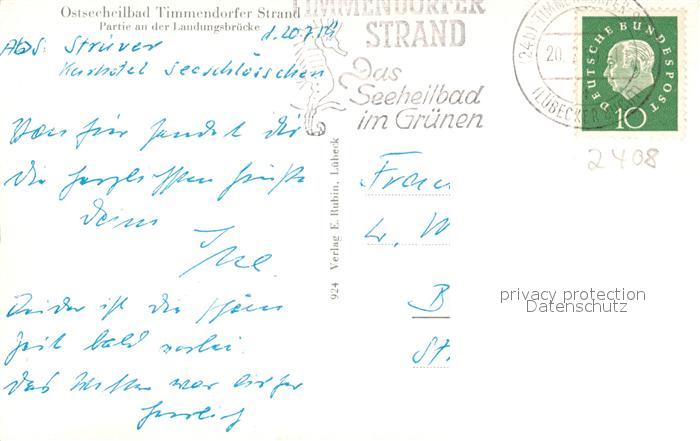 Ostseeheilbad Timmendorfer Strand
Partie an der Landungsbrücke
Abs: Struver
Kurhotel Seeschlösschen
d. 20.7.
TIMMENDORFER
STRAND
Das
Seeheilbad
im Grünen
TIMMENDORFER
(LÜBECKER
20.
DEUTSCHE BUNDESPOST
10
2408
Von hier sendet dir
die herzlichsten Grüße
deine
924 Verlag E. Rubin, Lübeck
Frau
W
B
St.
privacy protection
Datenschutz
Leider ist die schöne
Zeit bald vorbei.
Das Wetter war bisher
herrlich